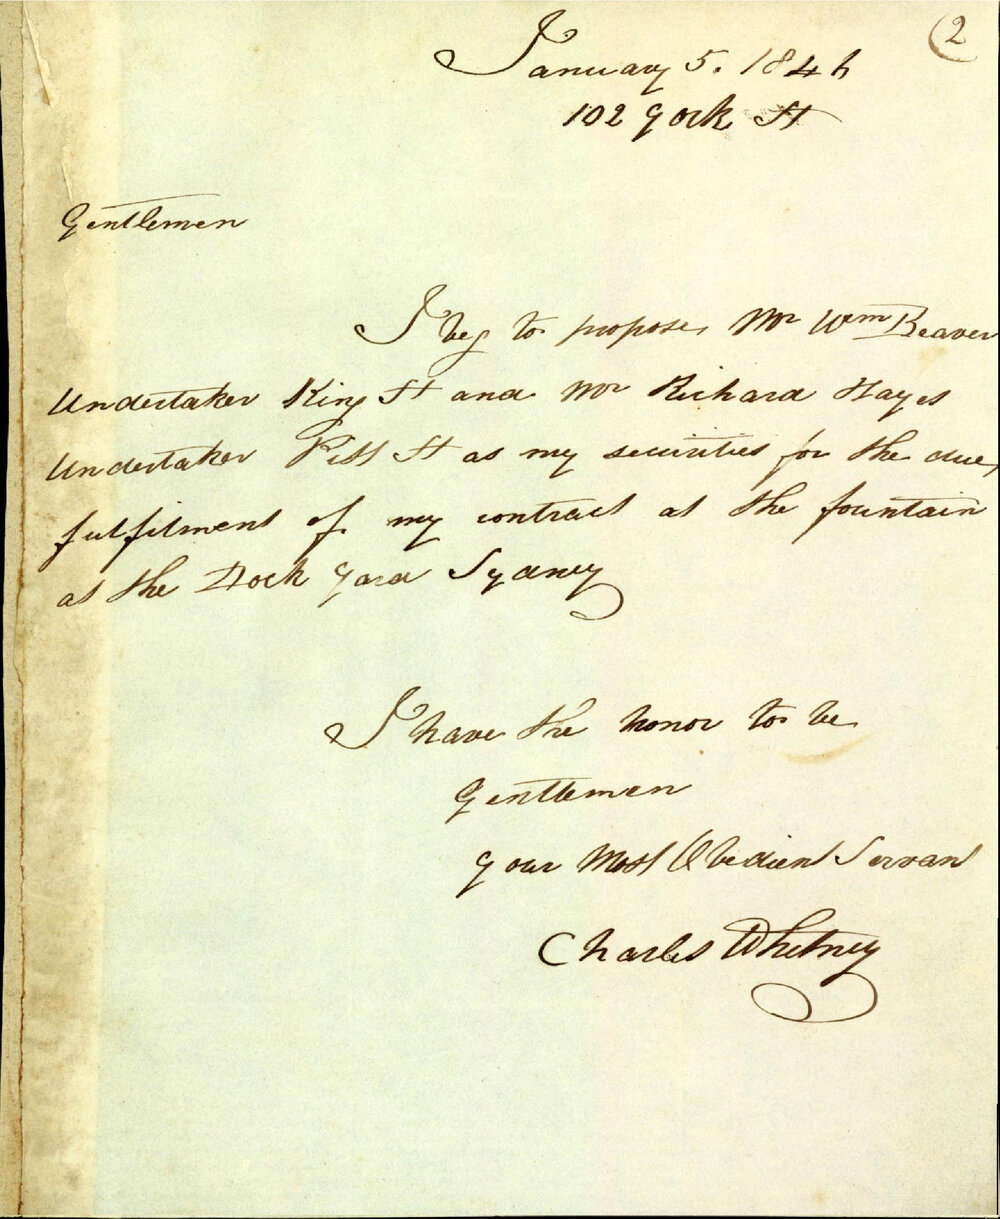 2
January 5. 1846
102 York St
Gentlemen
I beg to propose Mr Wm Beaver
Undertaker King St and Mr Richard Hayes
Undertaker Pitt St as my securities for the due
fulfilment of my contract at the fountain
at the Dock Yard Sydney
I have the honor to be
Gentlemen
Your Most Obedient Servant
Charles Whitney